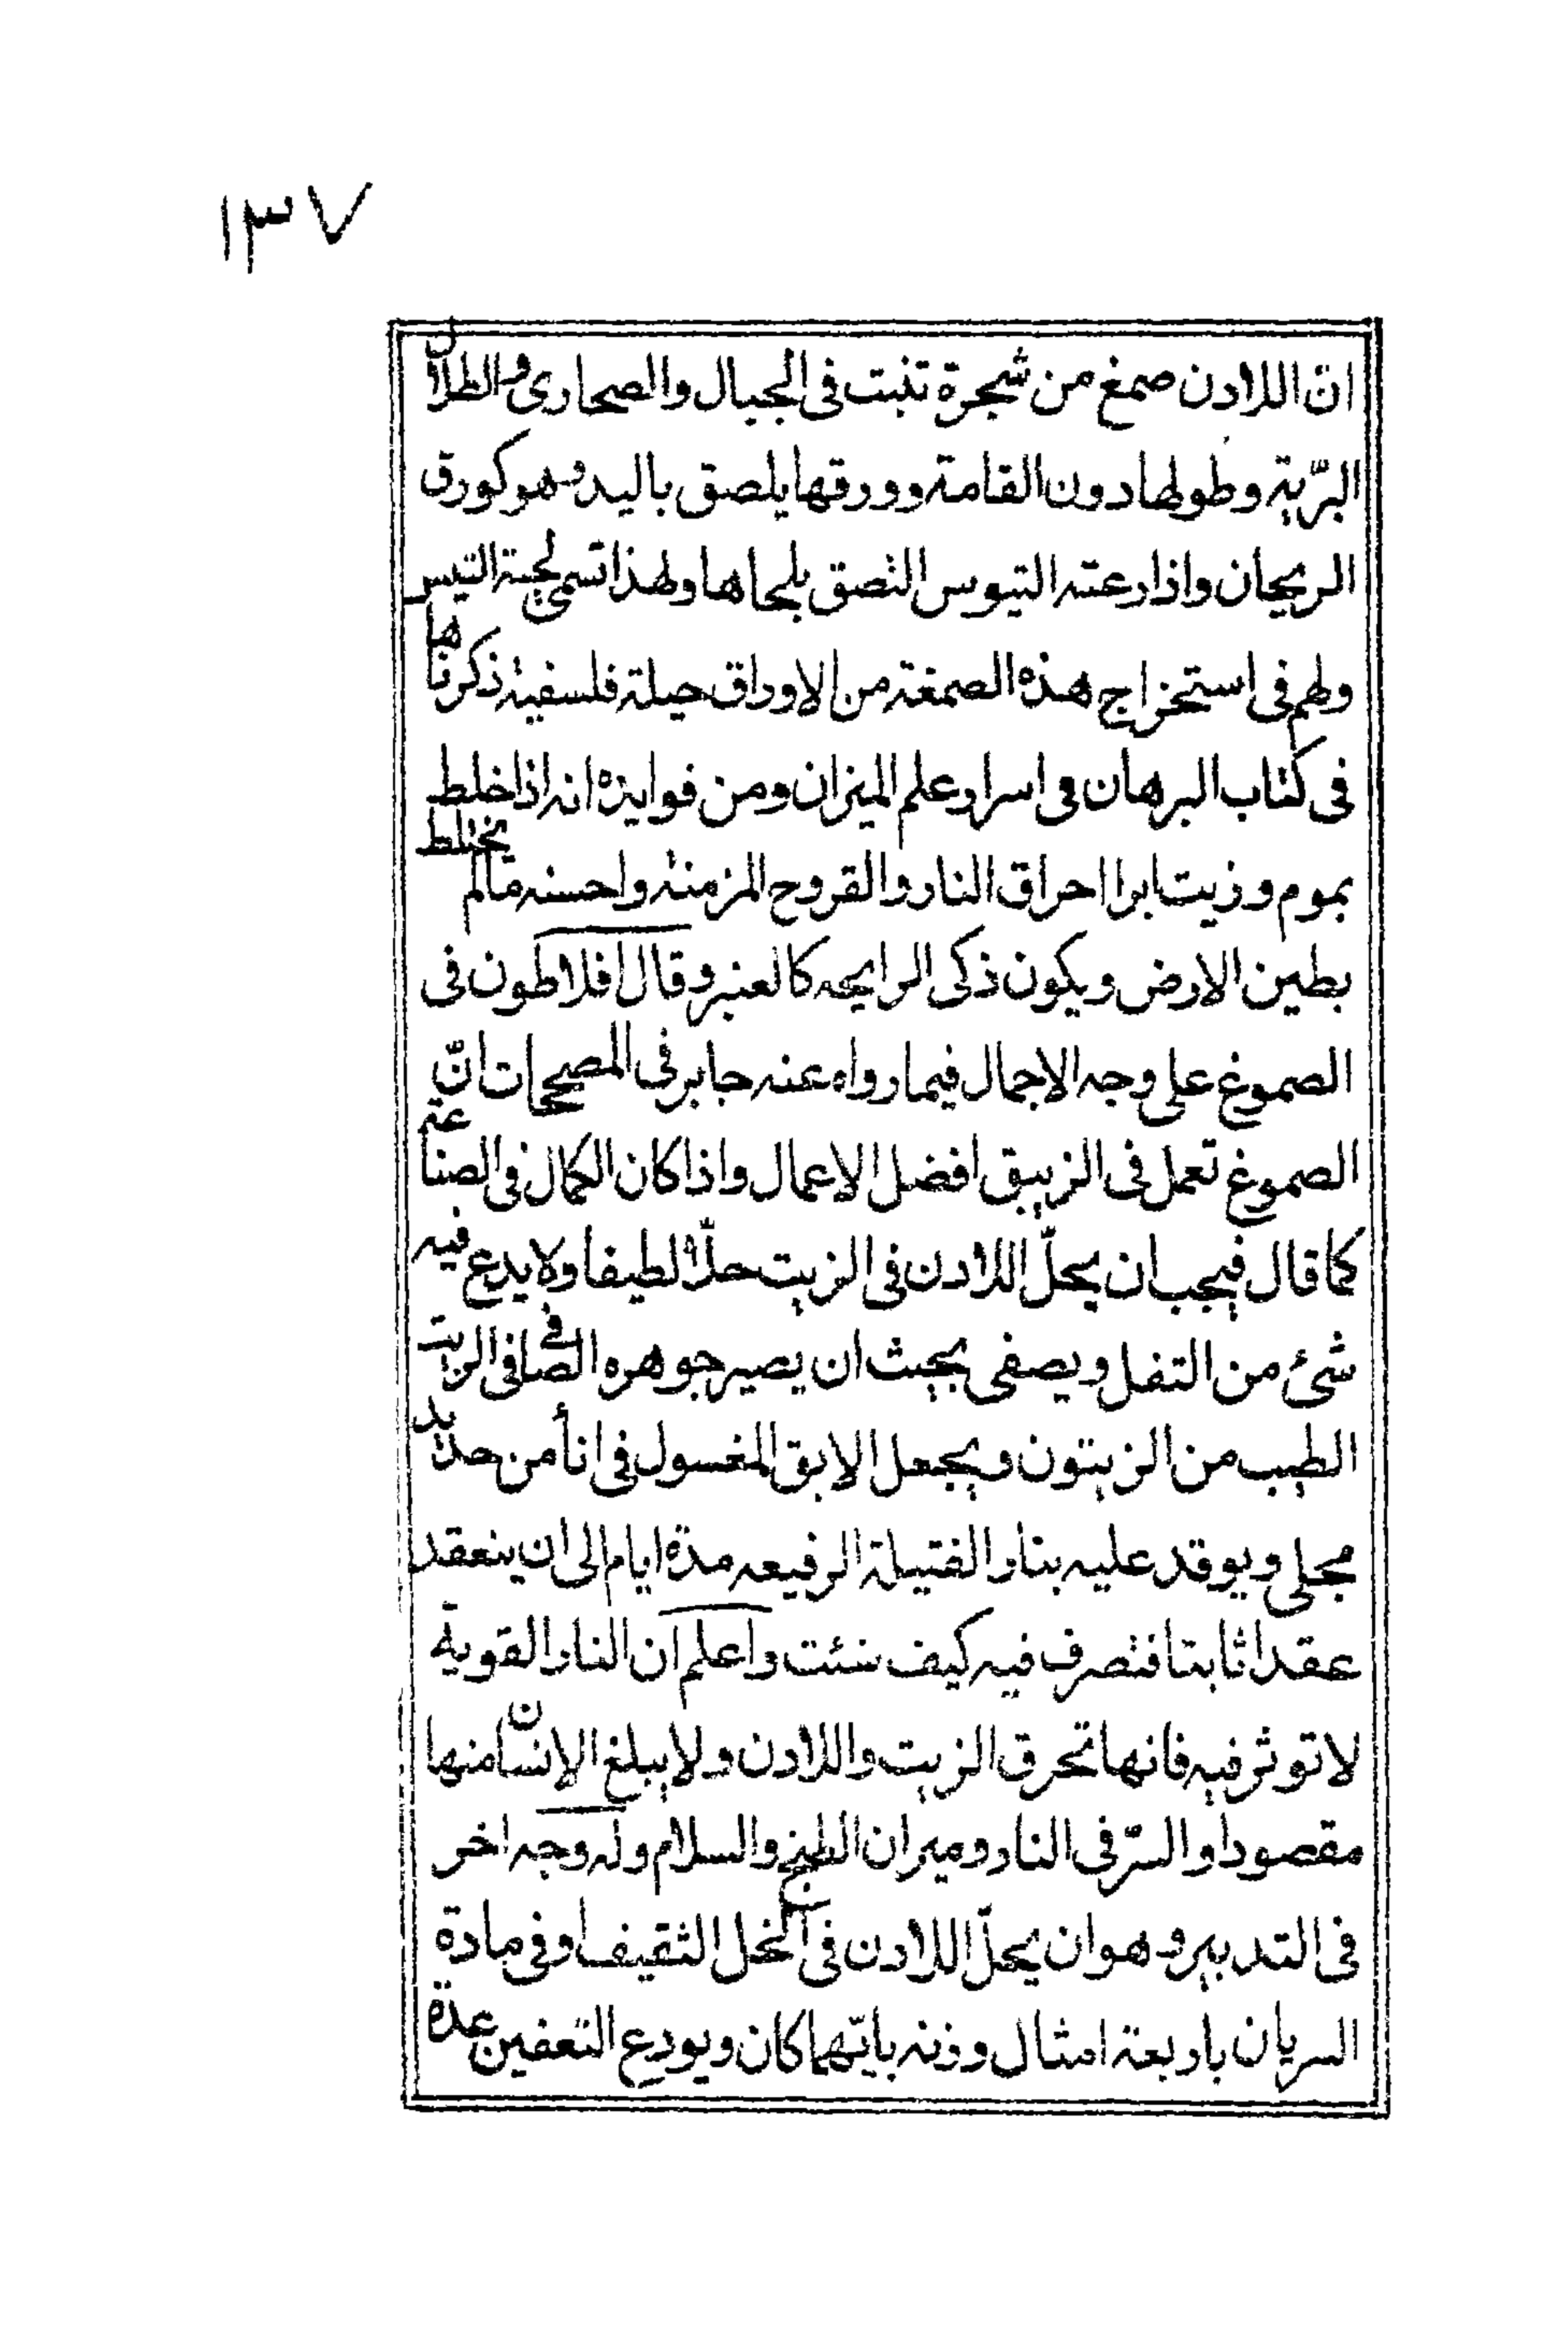 ١٣٧
انّ اللادن صمغ من شجرة تنبت فى الجبال والصحارى والطلال
البرّية وطولها دون القامة وورقها يلصق باليد وهو كورق
الريحان واذا رعته التيوس التصق بلحاها ولهذا تسمى لحية التيس
ولهم فى استخراج هذه الصمغة من الاوراق حيلة فلسفية ذكرناها
فى كتاب البرهان فى اسرار علم الميزان ومن فوايده انه اذا خلط
بموم وزيت ابرا احراق النار والقروح المزمنة واحسنه مالم يختلط
بطين الارض ويكون ذكى الرايحه كالعنبر وقال افلاطون فى
الصموغ على وجه الاجمال فيما رواه عنه جابر فى المصححات انّ
الصموغ تعمل فى الزيبق افضل الاعمال واذا كان الكمال فى الصناعة
كما قال فيجب ان يحلّ اللادن فى الزيت حلّا لطيفا ولا يدع فيه
شئ من التفل ويصفى بحيث ان يصير جوهره الصافى فى الزيت
الطيب من الزيتون ويجعل الابق المغسول فى انأ من حديد
مجلى ويوقد عليه بنار الفتيلة الرفيعه مدة ايام الى ان ينعقد
عقدا ثابتا فتصرف فيه كيف شئت واعلم ان النار القوية
لا توثر فيه فانها تحرق الزيت واللادن ولا يبلغ الإنسان منها
مقصودا والسّر فى النار وميزان الطبخ والسلام وله وجه اخر
فى التدبير وهو ان يحلّ اللادن فى الخل الثقيف او فى مادة
السريان باربعة امثال وزنه بايّهما كان ويودع التعفين عدة